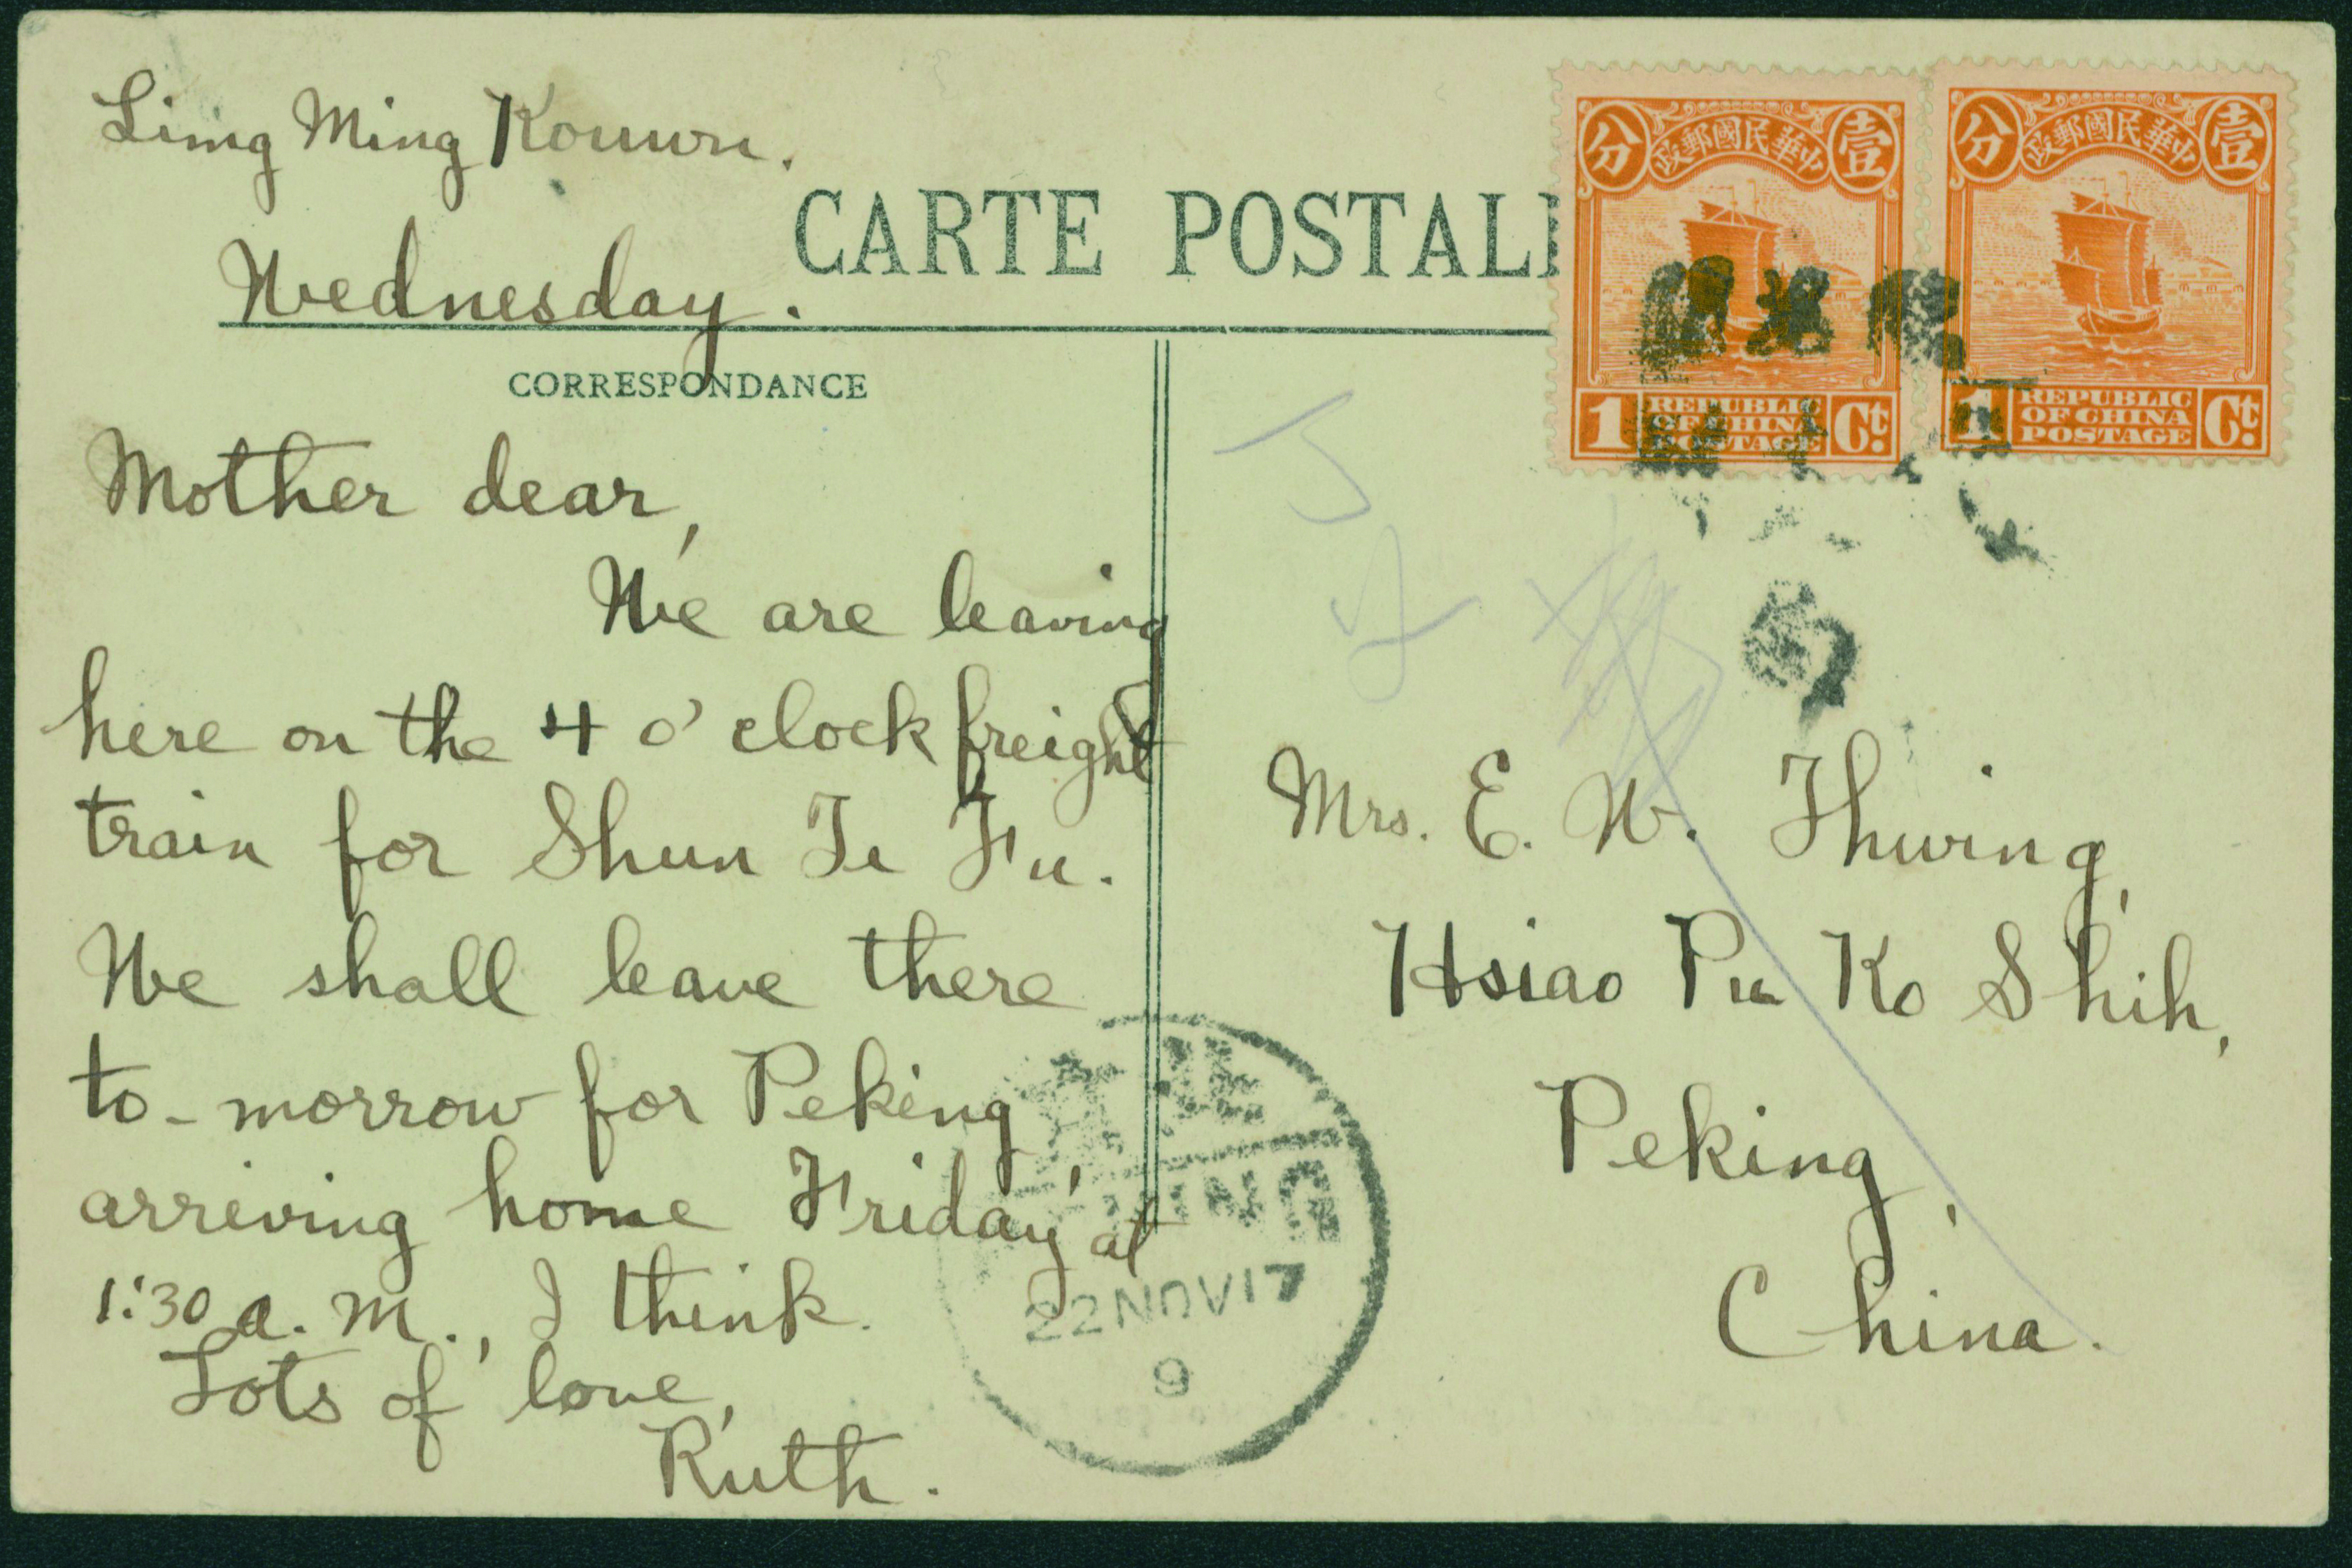 Limg Ming Kouwn.
Wednesday.
CARTE POSTAL
CORRESPONDANCE
Mother dear,
We are leaving
here on the 4 o'clock freight
train for Shun Te Fu.
We shall leave there
to-morrow for Peking,
arriving home Friday at
1:30 a. m., I think.
Lots of love,
Ruth.
分 中華民國郵政 壹
1 REPUBLIC OF CHINA POSTAGE Ct.
分 中華民國郵政 壹
1 REPUBLIC OF CHINA POSTAGE Ct.
Mrs. E. W. Thwing,
Hsiao Pu Ko Shih,
Peking,
China.
22 NOV 17
9